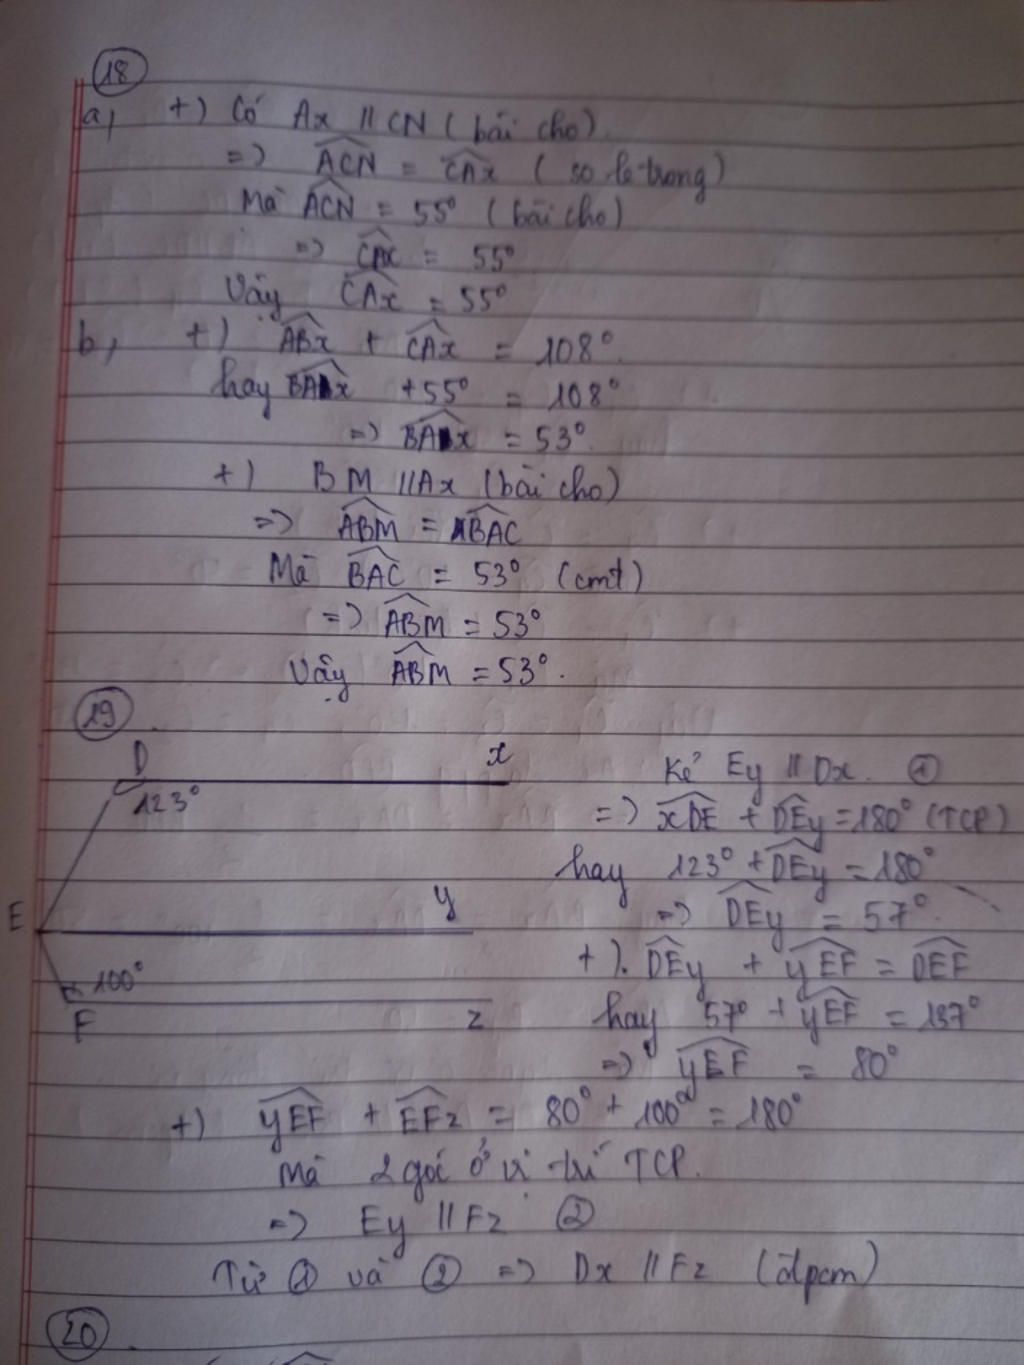 18
a, +) Có Ax // CN (bài cho)
=> ACN = CAx (so le trong)
Mà ACN = 55° (bài cho)
=> CAx = 55°
Vậy CAx = 55°
b, +) ABx + CAx = 108°.
hay BAx + 55° = 108°
=> BAx = 53°.
+) BM // Ax (bài cho)
=> ABM = BAC
Mà BAC = 53° (cmt)
=> ABM = 53°
Vậy ABM = 53°.
19
D x
123°
E y
100°
F z
Kẻ Ey // Dx. ①
=> xDE + DEy = 180° (TCP)
hay 123° + DEy = 180°
=> DEy = 57°.
+). DEy + yEF = DEF
hay 57° + yEF = 137°
=> yEF = 80°
+) yEF + EFz = 80° + 100° = 180°
Mà 2 góc ở vị trí TCP.
=> Ey // Fz ②
Từ ① và ② => Dx // Fz (đpcm)
20